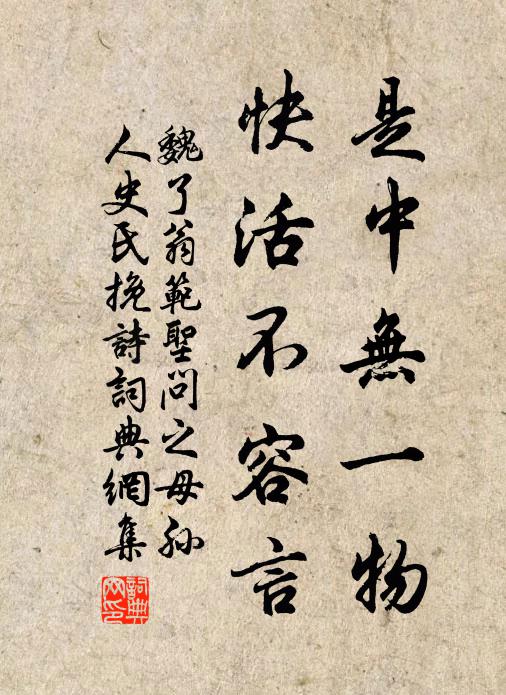 是中無一物
快活不容言
魏了翁範聖問之母孫
人史氏挽詩詞典網集
詞典
网印